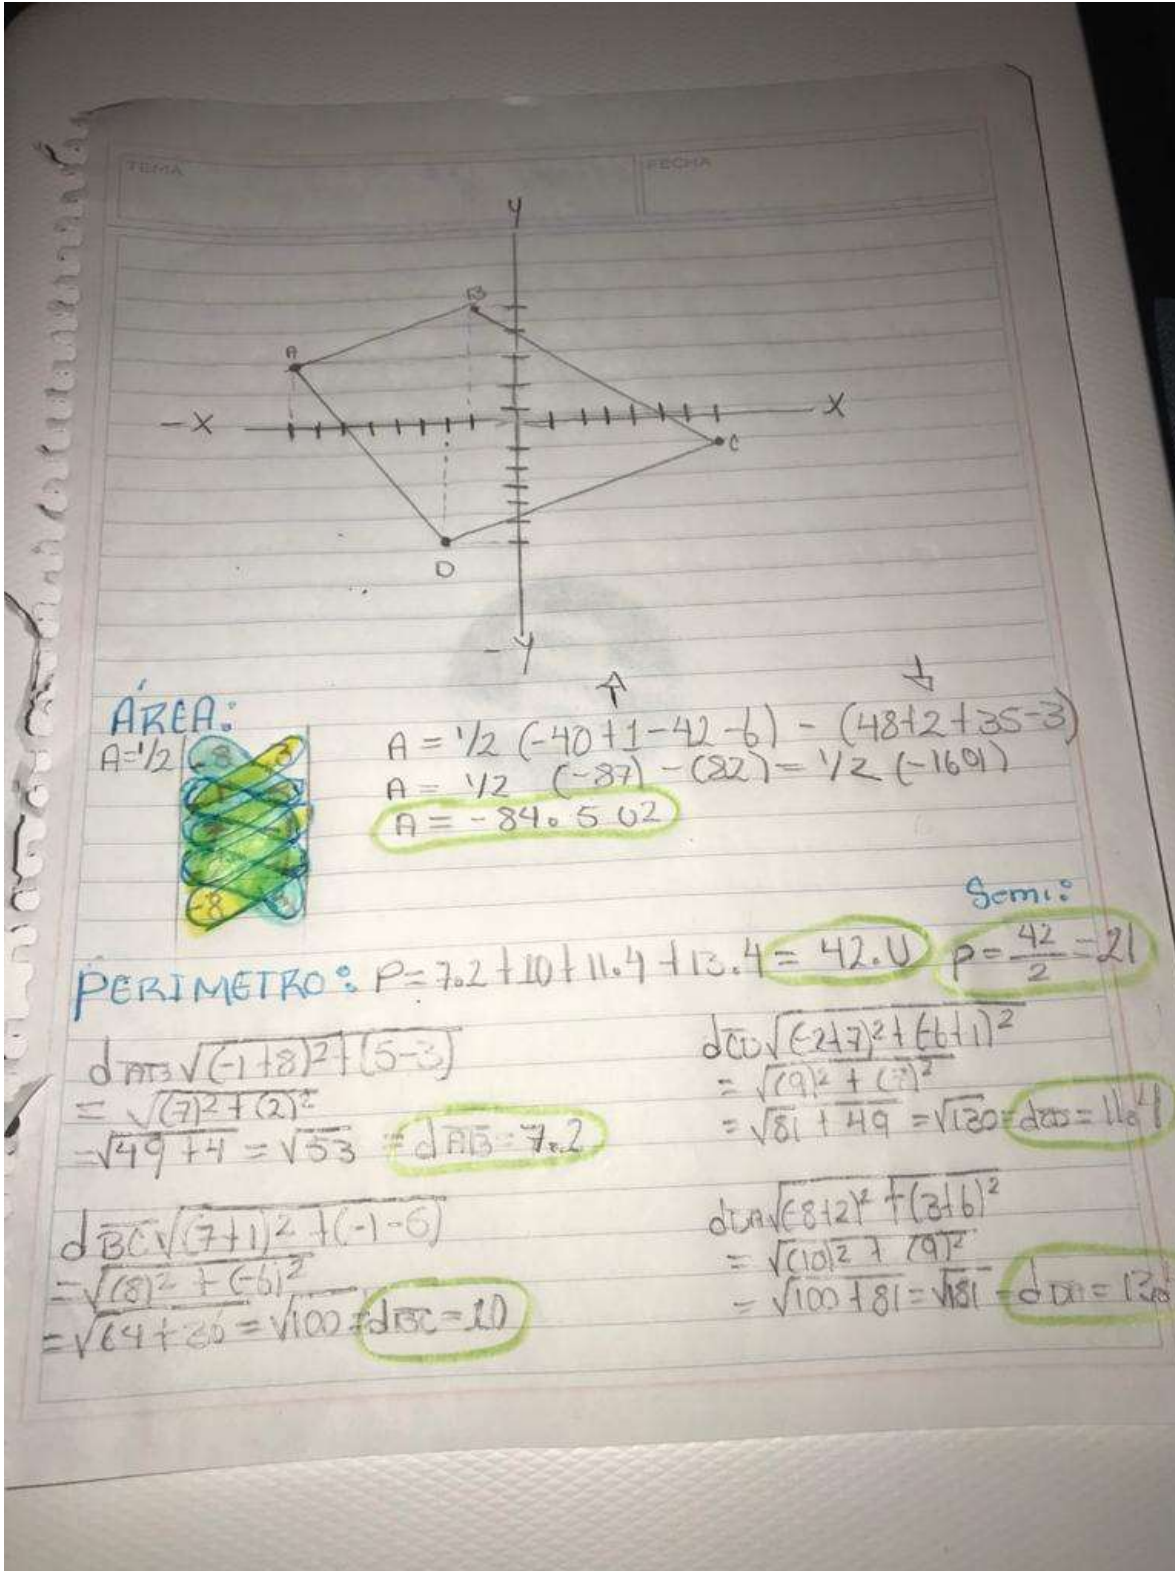 TEMA
FECHA
Y
B
A
-X
X
C
D
-Y
ÁREA:
A=1/2
-8 3
-8 3
A = 1/2 (-40+1-42-6) - (48+2+35-3)
A = 1/2 (-87) - (82) = 1/2 (-169)
A = -84.5 U2
Semi:
PERIMETRO: P=7.2+10+11.4+13.4 = 42.U
P=42/2=21
dAB√(-1+8)²+(5-3)
= √(7)²+(2)²
=√49+4 = √53 = dAB=7.2
dCD√(-2+7)²+(-6+1)²
= √(9)²+(7)²
= √81+49 = √130 = dCD=11.4
dBC√(7+1)²+(-1-5)
=√(8)²+(-6)²
=√64+36=√100=dBC=10
dDA√(-8+2)²+(3+6)²
= √(10)²+(9)²
= √100+81=√181=dDA=13